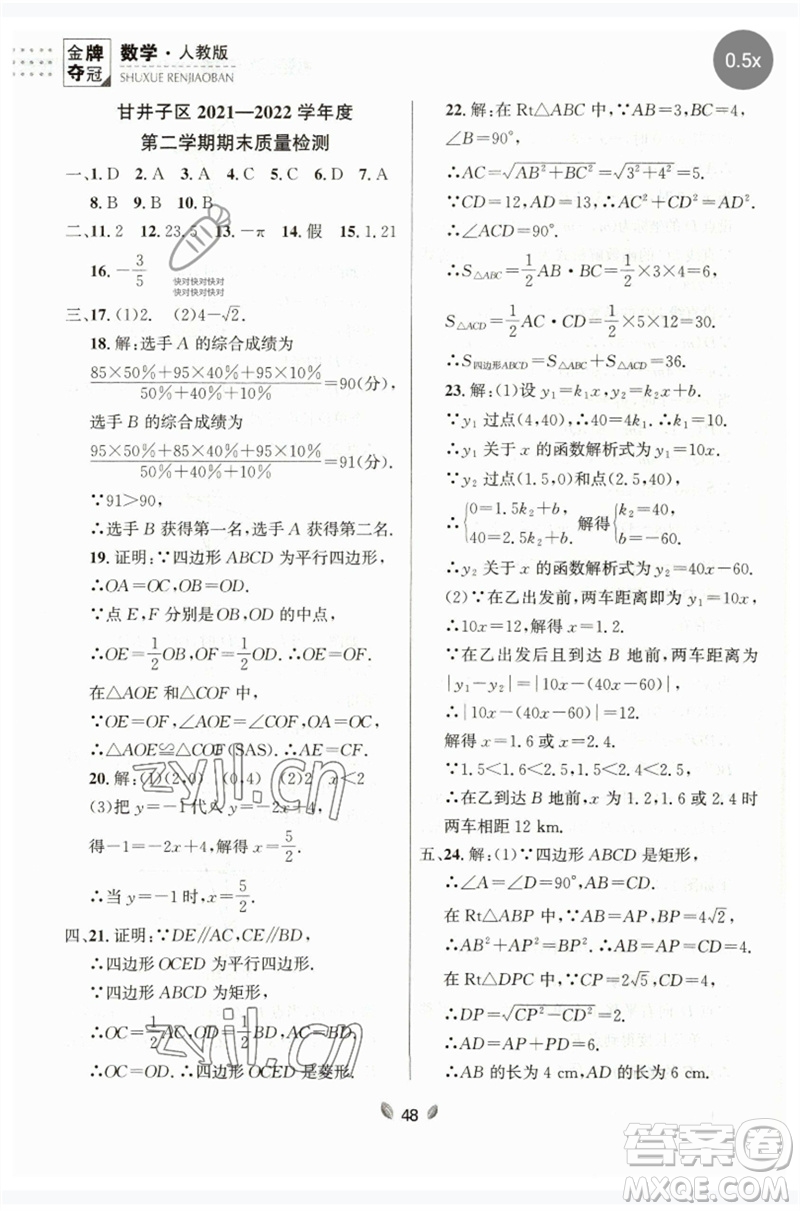 金牌
夺冠
数学·人教版
SHUXUE RENJIAOBAN
0.5x
甘井子区 2021—2022 学年度
第二学期期末质量检测
一、1. D 2. A 3. A 4. C 5. C 6. C 7. A
8. B 9. B 10. B
二、11. 2 12. 23.5 13. －π 14. 假 15. 1.21
16. －3/5
快对快对快对
快对快对快对
三、17. (1)2. (2)4－√2.
18. 解：选手 A 的综合成绩为
(85×50％＋95×40％＋95×10％)/(50％＋40％＋10％)＝90(分)，
选手 B 的综合成绩为
(95×50％＋85×40％＋95×10％)/(50％＋40％＋10％)＝91(分).
∵91＞90，
∴选手 B 获得第一名，选手 A 获得第二名.
19. 证明：∵四边形 ABCD 为平行四边形，
∴OA＝OC，OB＝OD.
∵点 E，F 分别是 OB，OD 的中点，
∴OE＝1/2 OB，OF＝1/2 OD. ∴OE＝OF.
在△AOE 和△COF 中，
∵AO＝CO，∠AOE＝∠COF，OE＝OF，
∴△AOE≌△COF(SAS). ∴AE＝CF.
20. 解：(1)(2,0) (0,4) (2)x＜2
(3)把 y＝－1 代入 y＝－2x＋4，
得－1＝－2x＋4，解得 x＝5/2.
∴当 y＝－1 时，x＝5/2.
四、21. 证明：∵DE∥AC，CE∥BD，
∴四边形 OCED 为平行四边形.
∵四边形 ABCD 为矩形，
∴OC＝1/2 AC，OD＝1/2 BD，AC＝BD.
∴OC＝OD. ∴四边形 OCED 是菱形.
22. 解：在 Rt△ABC 中，∵AB＝3，BC＝4，
∠B＝90°，
∴AC＝√(AB²＋BC²)＝√(3²＋4²)＝5.
∵CD＝12，AD＝13，∴AC²＋CD²＝AD².
∴∠ACD＝90°.
∴S△ABC＝1/2 AB·BC＝1/2×3×4＝6，
S△ACD＝1/2 AC·CD＝1/2×5×12＝30.
∴S四边形ABCD＝S△ABC＋S△ACD＝36.
23. 解：(1)设 y₁＝k₁x，y₂＝k₂x＋b.
∵y₁ 过点(4,40)，∴40＝4k₁. ∴k₁＝10.
∴y₁ 关于 x 的函数解析式为 y₁＝10x.
∵y₂ 过点(1.5,0)和点(2.5,40)，
∴{0＝1.5k₂＋b， 40＝2.5k₂＋b. 解得{k₂＝40， b＝－60.
∴y₂ 关于 x 的函数解析式为 y₂＝40x－60.
(2)∵在乙出发前，两车距离即为 y₁＝10x，
∴10x＝12，解得 x＝1.2.
∵在乙出发后且到达 B 地前，两车距离为
|y₁－y₂|＝|10x－(40x－60)|，
∴|10x－(40x－60)|＝12.
解得 x＝1.6 或 x＝2.4.
∵1.5＜1.6＜2.5，1.5＜2.4＜2.5，
∴在乙到达 B 地前，x 为 1.2，1.6 或 2.4 时
两车相距 12 km.
五、24. 解：(1)∵四边形 ABCD 是矩形，
∴∠A＝∠D＝90°，AB＝CD.
在 Rt△ABP 中，∵AB＝AP，BP＝4√2，
∴AB²＋AP²＝BP². ∴AB＝AP＝4.
在 Rt△DPC 中，∵CP＝2√5，CD＝4，
∴DP＝√(CP²－CD²)＝2.
∴AD＝AP＋DP＝6.
∴AB 的长为 4 cm，AD 的长为 6 cm.
48
zyjl.cn
zyjl.cn
答案卷
MXQE.COM